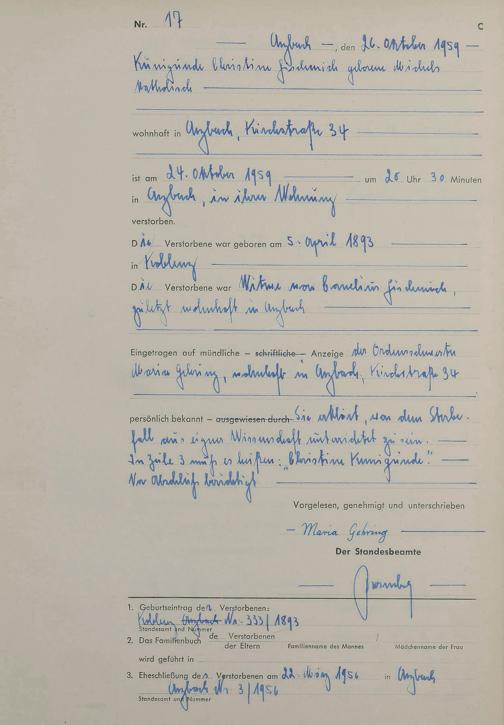 Nr. 17
C
Anzbach —, den 26. Oktober 1959 —
Kunigunde Christine Fischenich geborene Michels
katholisch
wohnhaft in Anzbach, Kirchstraße 34
ist am 24. Oktober 1959 um 20 Uhr 30 Minuten
in Anzbach, in ihrer Wohnung
verstorben.
Die Verstorbene war geboren am 5. April 1893
in Koblenz
Die Verstorbene war Witwe von Cornelius Fischenich,
zuletzt wohnhaft in Anzbach
Eingetragen auf mündliche – schriftliche – Anzeige der Ordensschwester
Maria Gehring, wohnhaft in Anzbach, Kirchstraße 34
persönlich bekannt – ausgewiesen durch Sie erklärt, von dem Sterbe-
fall aus eigner Wissenschaft unterrichtet zu sein.
In Zeile 3 muß es heißen: „Christine Kunigunde."
Vor Abschluß berichtigt
Vorgelesen, genehmigt und unterschrieben
Maria Gehring
Der Standesbeamte
1. Geburtseintrag der Verstorbenen:
Koblenz Anzbach Nr. 333/1893
Standesamt und Nummer
2. Das Familienbuch de Verstorbenen
der Eltern Familienname des Mannes Mädchenname der Frau
wird geführt in
3. Eheschließung der Verstorbenen am 22. März 1956 in Anzbach
Anzbach Nr. 3/1956
Standesamt und Nummer